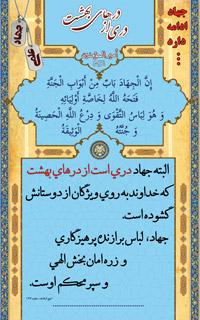 جهاد
ادامه
دارد
...
دری از
درهای بهشت
جهاد
إِنَّ الْجِهَادَ بَابٌ مِنْ أَبْوَابِ الْجَنَّةِ
فَتَحَهُ اللَّهُ لِخَاصَّةِ أَوْلِيَائِهِ
وَ هُوَ لِبَاسُ التَّقْوَى وَ دِرْعُ اللَّهِ الْحَصِينَةُ
وَ جُنَّتُهُ الْوَثِيقَةُ
البته جهاد دري است از درهاي بهشت
كه خداوند به روي ويژگان از دوستانش
گشوده است.
جهاد، لباس برازنده پرهيزگاري
و زره امان بخش الهي
و سپر محكم اوست.